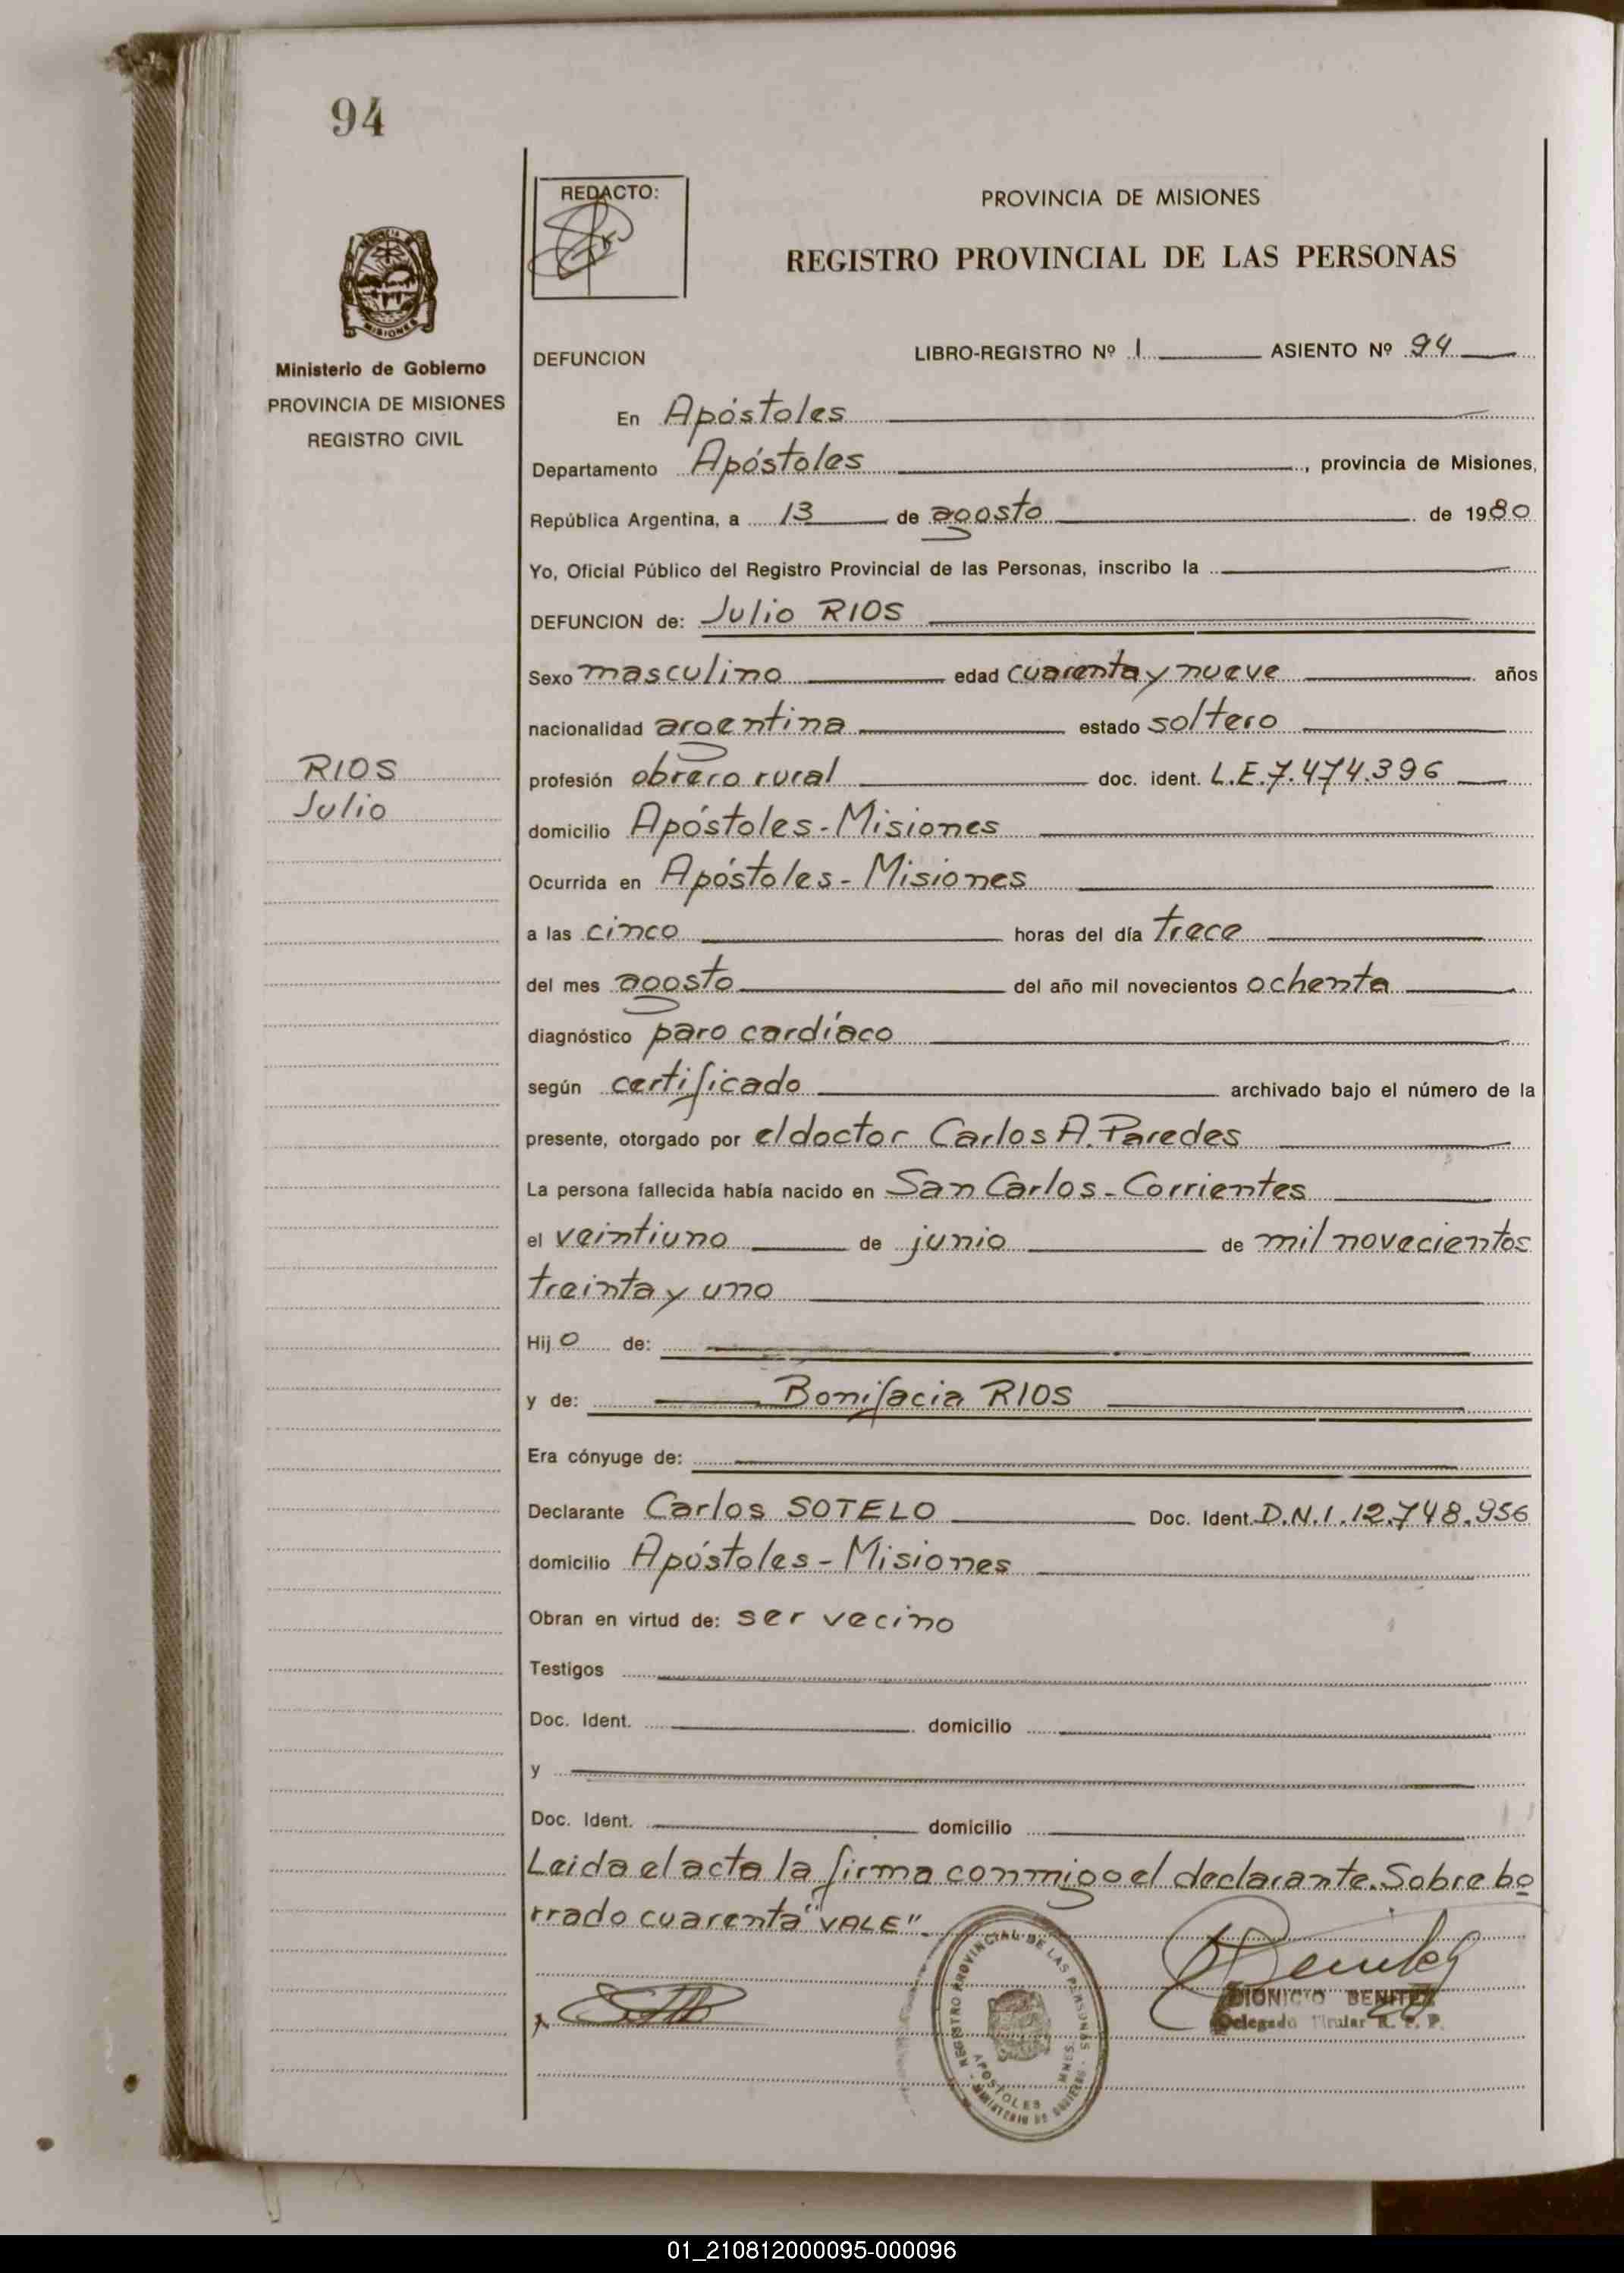 94
REDACTO:
PROVINCIA DE MISIONES
REGISTRO PROVINCIAL DE LAS PERSONAS
MISIONES
Ministerio de Gobierno
PROVINCIA DE MISIONES
REGISTRO CIVIL
DEFUNCION LIBRO-REGISTRO Nº 1 ASIENTO Nº 94
En Apóstoles
Departamento Apóstoles, provincia de Misiones,
República Argentina, a 13 de agosto de 1980
Yo, Oficial Público del Registro Provincial de las Personas, inscribo la
DEFUNCION de: Julio RIOS
Sexo masculino edad cuarenta y nueve años
nacionalidad argentina estado soltero
RIOS
Julio
profesión obrero rural doc. ident. L.E. 7.474.396
domicilio Apóstoles - Misiones
Ocurrida en Apóstoles - Misiones
a las cinco horas del día trece
del mes agosto del año mil novecientos ochenta
diagnóstico paro cardíaco
según certificado archivado bajo el número de la
presente, otorgado por el doctor Carlos A. Paredes
La persona fallecida había nacido en San Carlos - Corrientes
el veintiuno de junio de mil novecientos
treinta y uno
Hijo de:
y de: Bonifacia RIOS
Era cónyuge de:
Declarante Carlos SOTELO Doc. Ident. D.N.I. 12.748.956
domicilio Apóstoles - Misiones
Obran en virtud de: ser vecino
Testigos
Doc. Ident. domicilio
y
Doc. Ident. domicilio
Leida el acta la firma conmigo el declarante. Sobre bo
rrado cuarenta "VALE".
REGISTRO PROVINCIAL DE LAS PERSONAS
APOSTOLES MNES.
MINISTERIO DE GOBIERNO
DIONICIO BENITEZ
Delegado Titular R. P. P.
01_210812000095-000096